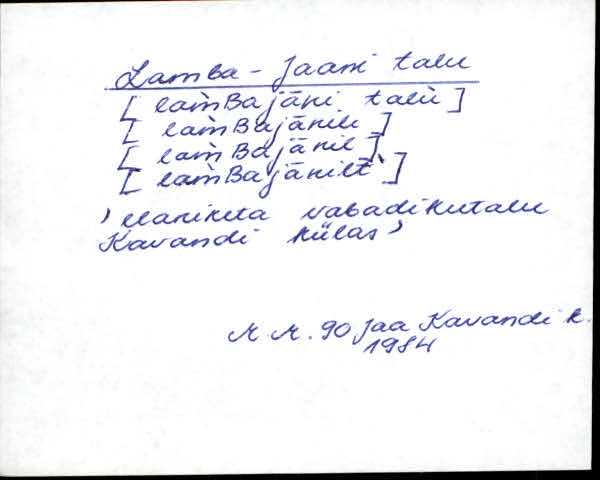 Lamba-Jaani talu
[lam̀Bajāni talù]
[lam̀Bajānile]
[lam̀Bajānil]
[lam̀Bajānilt̀]
, elaniketa vabadikutalu
Kavandi külas ,
M. M. 90 Jaa Kavandi k.
1984